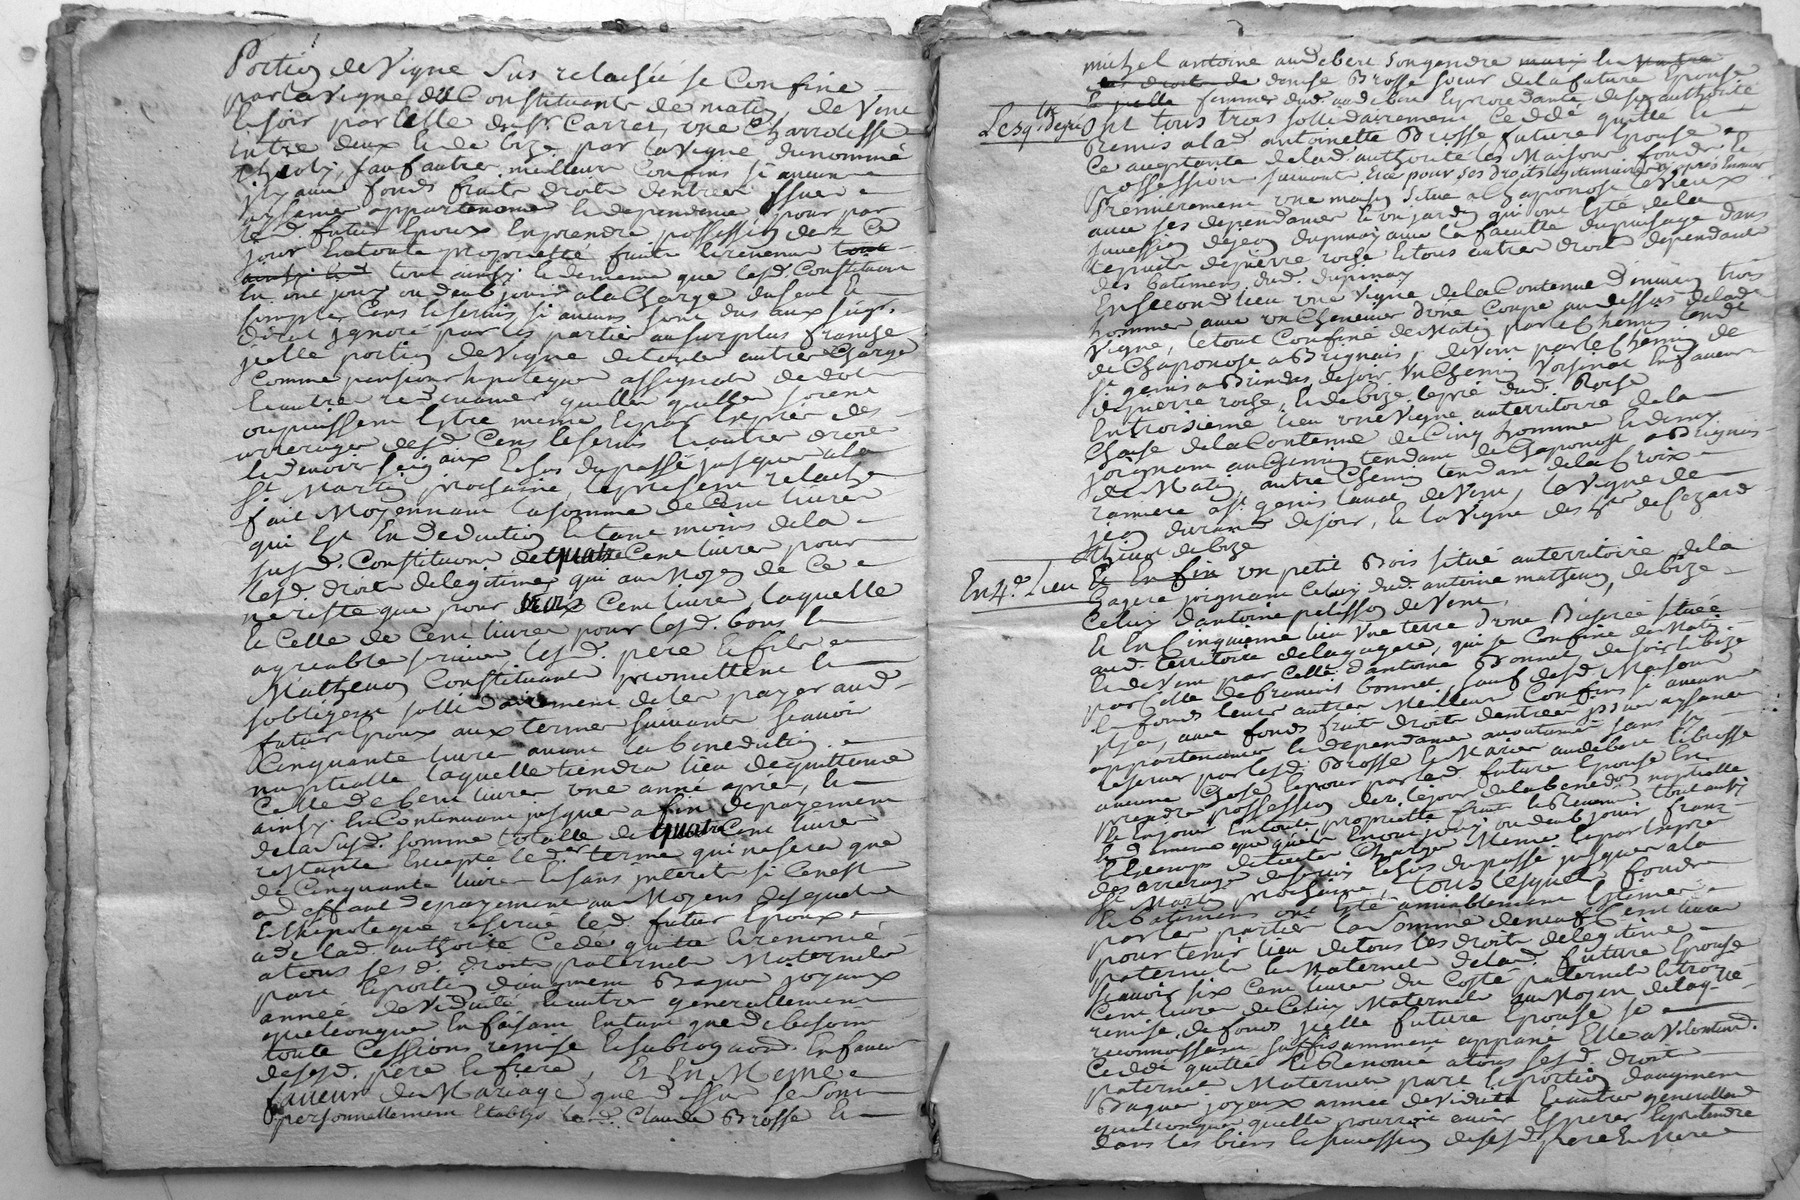 Portion de Vigne Sus relachée se Confine
par la vigne du Constituant de matin de Vent
le soir par celle du Sr Carret, une Charrotiere
Entre deux et de bize par la vigne du nommé
sauf autres meilleurs Confins si aucuns
il y a avec fonds fruits droits d'entrée issues
aysance appartenance et dependance pour par
led. futur Epoux En prendre possession dez ce
jour En toute proprietté fruits et revenus tout
tout ainsy et de meme que lesd. Constituant
En ont jouy ou deub jouir a la Charge du seul et
simple Cens et servis si aucuns sont dus aux seigr.
directs ignoré par les parties au surplus franche
icelle portion de Vigne de toutes autres Charges
Comme pensions hipoteques assignats de dot
et autres redevances quelles quelles soient
ou puissent Estre meme Et par Exprès des
arrerages desd. Cens et servis et autres droits
et devoirs seig.aux Echus du passé jusques a la
St Martin prochaine, le present relache
fait Moyennant la somme de Cent livres
qui Est En Deduction Et tant moins de la
susd. Constitution de quatre Cent livres pour
lesd. droits de legitimes qui au Moyen de Ce
ne reste que pour trois Cent livres laquelle
et Celle de Cent livres pour lesd. bons
agreables services lesd. pere et fils
Matheron Constituants promettent et
sobligent sollidairement de les payer aud.
futur Epoux aux termes suivants sçavoir
Cinquante livres avant la benediction
nuptialle laquelle tiendra lieu de quittance
Celle de Cent livres une année après, et
ainsy En Continuant jusques a fin de payement
de la susd. somme totalle de quatre Cent livres
restante Excepté le dr. terme qui ne sera que
de Cinquante livres et sans interets si ce nest
a deffaut de payement au Moyens desquels
Et hipoteque reservé led. futur Epoux
a de lad. authorité Cedé quitté et renoncé
a tous sesd. droits paternels Maternels
part et portion d'augment Bagues joyaux
année de Viduité et autres generallement
quelconques En faisant En tant que de besoin
toute Cessions remise et subrogaon. En faveur
de sesd. pere et frere, Et En Meme
faveur du Mariage que dessus se sont
personnellement Etablys led. Claude Brosse et
michel antoine audebert son gendre mary
de droits de denise Brosse soeur de la future Epouse
la quelle femme dud. audebert Et procedante de son authorité
Lesqls depuis
Ont tous trois sollidairement Ceddé quitté et
Remis a lad. antoinette Brosse future Epouse
Ce aceptante de lad. authorité les Maisons fonds et
possession suivants Et ce pour ses droits legitimaires cy après Enoncés
Premierement une maison Situé a Chaponost le Vieux
avec ses dependances et un jardin qui ont Esté de la
succession de jean dupinay avec la faculté du puisage dans
le puits de pierre roche et tous autres droits dependants
des batimens dud. dupinay
En Second lieu une Vigne de la Contenue d'environ trois
hommes avec un Chenevier d'une Coupe au dessus de lad.
Vigne, le tout Confiné de Matin par le Chemin tendt
de Chaponost a Brignais, de Vent par le Chemin de
St genis a Brindas, de soir Un Chemin Voisinal En faveur
de pierre roche, et de bize le pré dud. Roche
En troisieme lieu une Vigne au territoire de la
Chaise de la Contenue de Cinq hommes et demy
joignant au Chemin tendant de Chaponost a Brignais
de Matin autre Chemin tendant de la Croix
ramiere a St genis Laval de Vent, la Vigne de
jean durand de soir, et la Vigne des Srs de Cezard
de bize
En 4e Lieu
Et Enfin un petit Bois situé au territoire de la
Gagere joignant Celuy dud. antoine matheron, de bize
Celuy d'antoine pelisson de Vent,
Et En Cinquieme lieu Une terre d'une Bicherée située
aud. territoire de la gagere, qui se Confine de Matin
et de Vent par Celle d'antoine Bonnet de soir et bize
par Celle de francois bonnet, sauf desd. Maisons
et fonds leurs autres Meilleurs Confins si aucuns
il y a, avec fonds fruits droits d'entrée issues aysances
appartenances et dependances accoutumés sans
reserver par lesd. Brosse et Mariés audebert et brosse
aucune Chose Et pour par lad. future Epouse En
prendre possession dez le jour de la benedon nuptialle
Et En jouir En toute proprietté fruits et Revenus tout ainsy
et de meme que quils En ont jouy ou deub jouir franc
et Exempts de toutes Charges Meme Et par Exprès
des arrerages de servis Echus du passé jusques a la
St Martin prochaine, tous lesquels fonds
Et batimens ont Esté amiablement Estimés
par les parties La Somme de neuf Cent livres
pour tenir lieu de tous les droits de legitime
paternels et Maternels de lad. future Epouse
sçavoir six Cent livres du Costé paternel et trois
Cent livres de Celuy Maternel au Moyen de laqle
remise de fonds icelle future Epouse se
reconnoissant suffisamment appané Elle a Volontaimt
Ceddé quitté et Renoncé a tous sesd. droits
paternel Maternels part et portion d'augment
Bagues joyaux année de Viduité et autres generallemt
quelconques quelle pourroit avoir Esperer Et pretendre
dans les biens et succession de sesd. pere En pere